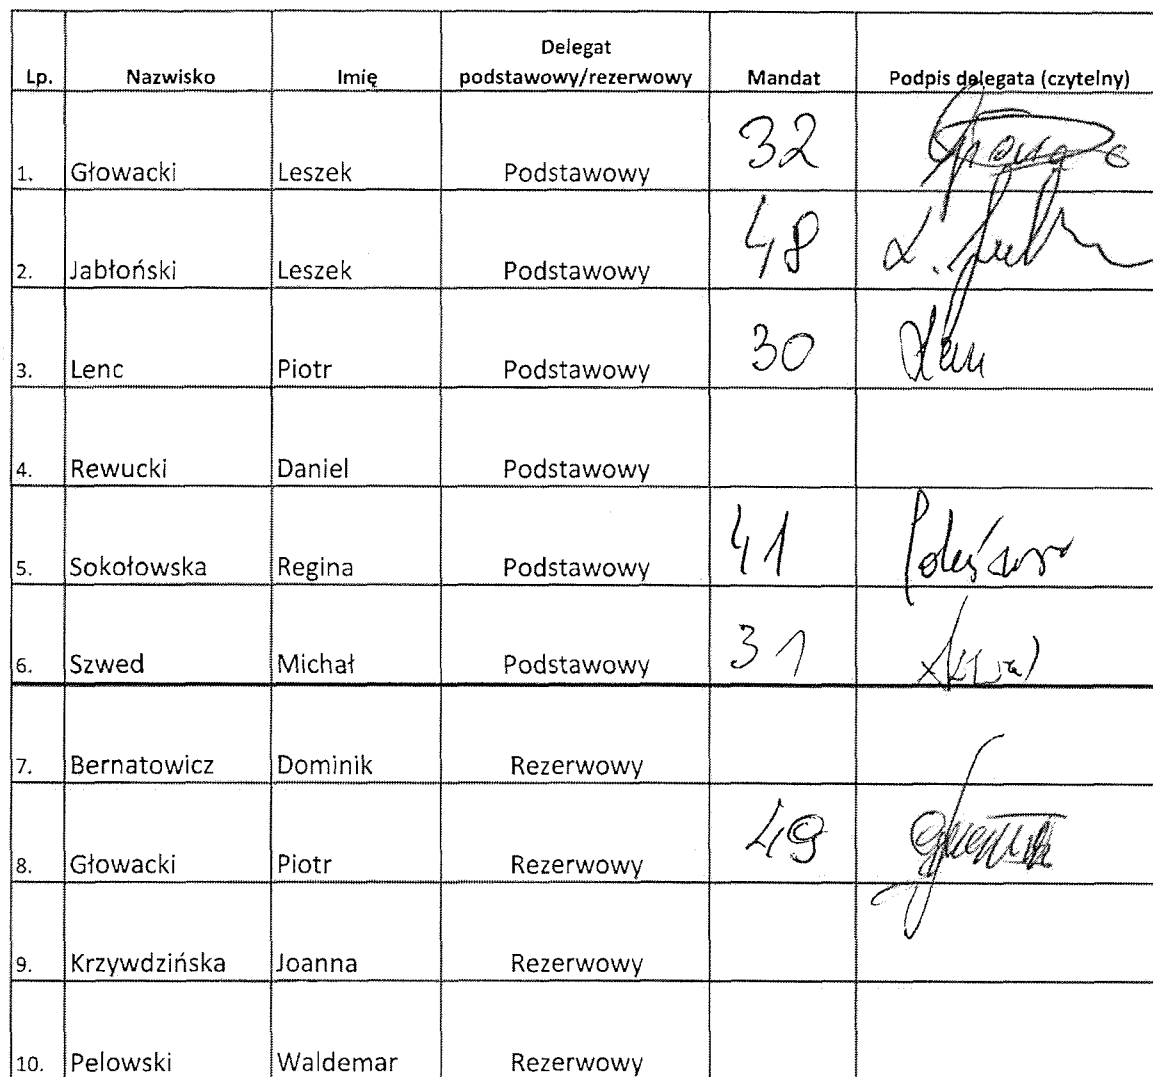 Lp. Nazwisko Imię Delegat podstawowy/rezerwowy Mandat Podpis delegata (czytelny)
1. Głowacki Leszek Podstawowy 32
2. Jabłoński Leszek Podstawowy 48
3. Lenc Piotr Podstawowy 30
4. Rewucki Daniel Podstawowy
5. Sokołowska Regina Podstawowy 41
6. Szwed Michał Podstawowy 31
7. Bernatowicz Dominik Rezerwowy
8. Głowacki Piotr Rezerwowy 49
9. Krzywdzińska Joanna Rezerwowy
10. Pelowski Waldemar Rezerwowy